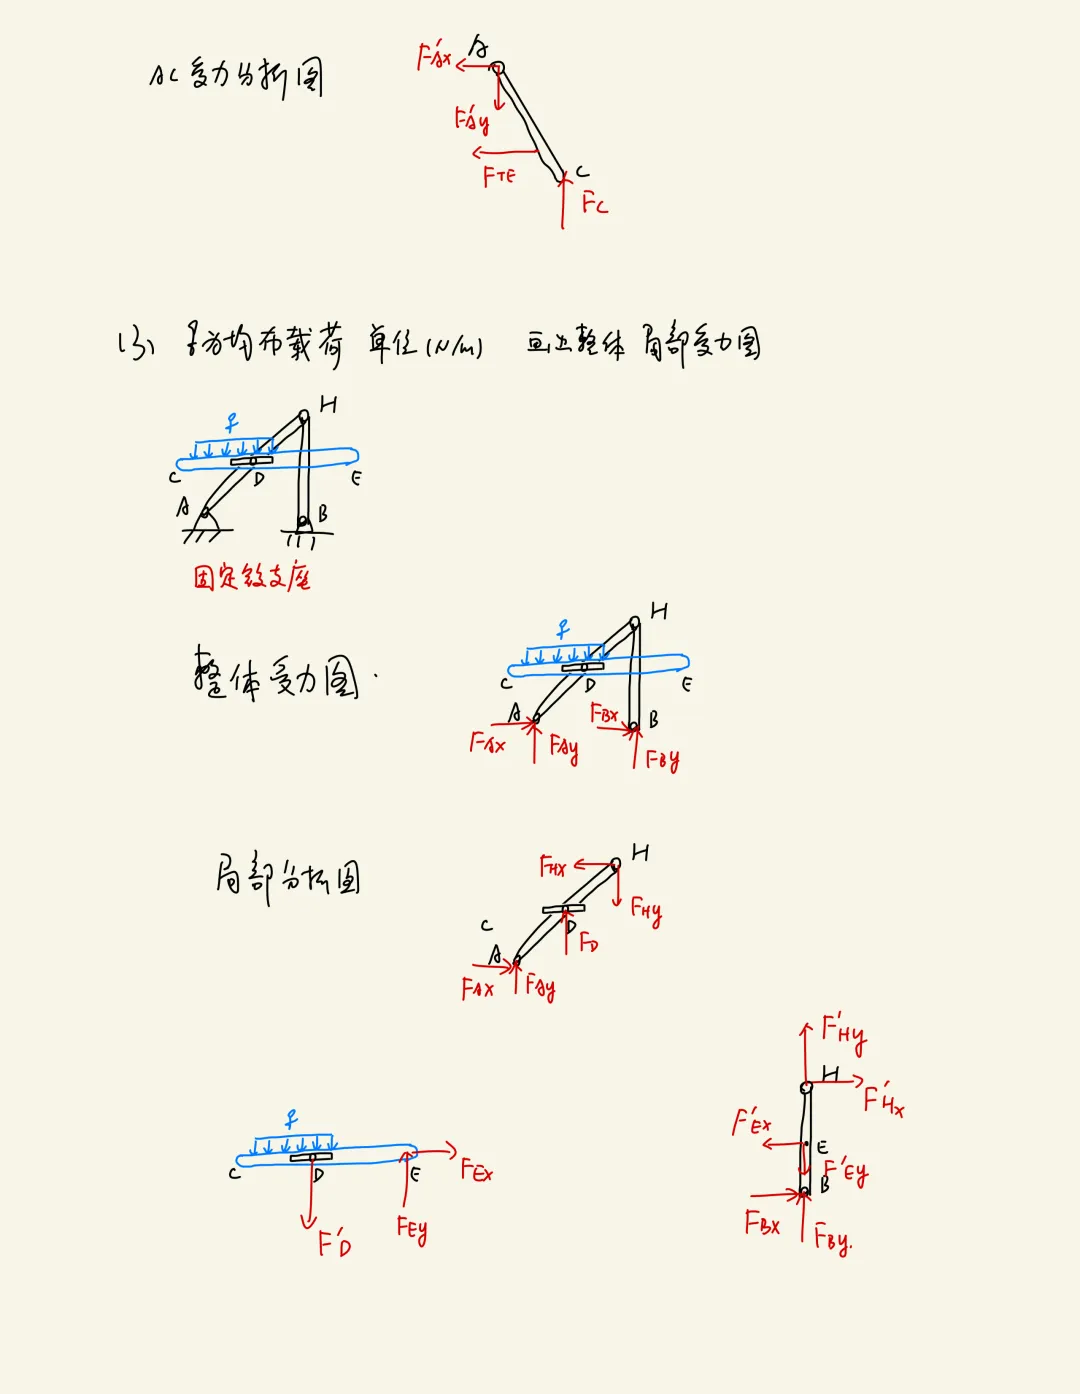 AC受力分析图
F'Ax
A
F'Ay
FTE
C
FC
(3) q为均布载荷 单位(N/m) 画出整体 局部受力图
H
q
C
D
E
A
B
固定铰支座
整体受力图.
H
q
C
D
E
A
FBx
B
FAx
FAy
FBy
局部分析图
H
FHx
FHy
C
D
FD
A
FAx
FAy
F'Hy
H
F'Hx
F'Ex
E
F'Ey
B
FBx
FBy.
q
C
D
E
FEx
F'D
FEy